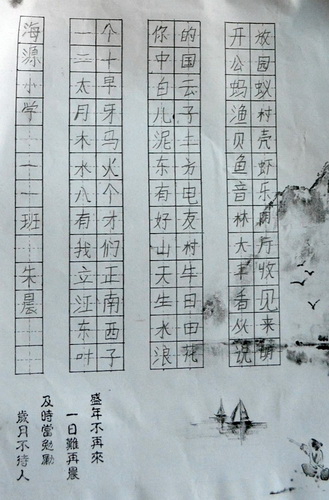 海源小学 一一班 朱晨
一个
二十
太早
月牙
木马
水火
八个
有才
我们
立正
江南
东西
叶子
你的
中国
白云
儿子
泥土
东方
有电
好友
山村
天牛
生日
水田
浪花
开放
公园
蚂蚁
渔村
贝壳
鱼虾
音乐
林
大
丰收
香见
从来
说明
盛年不再來
一日難再晨
及時當勉勵
歲月不待人